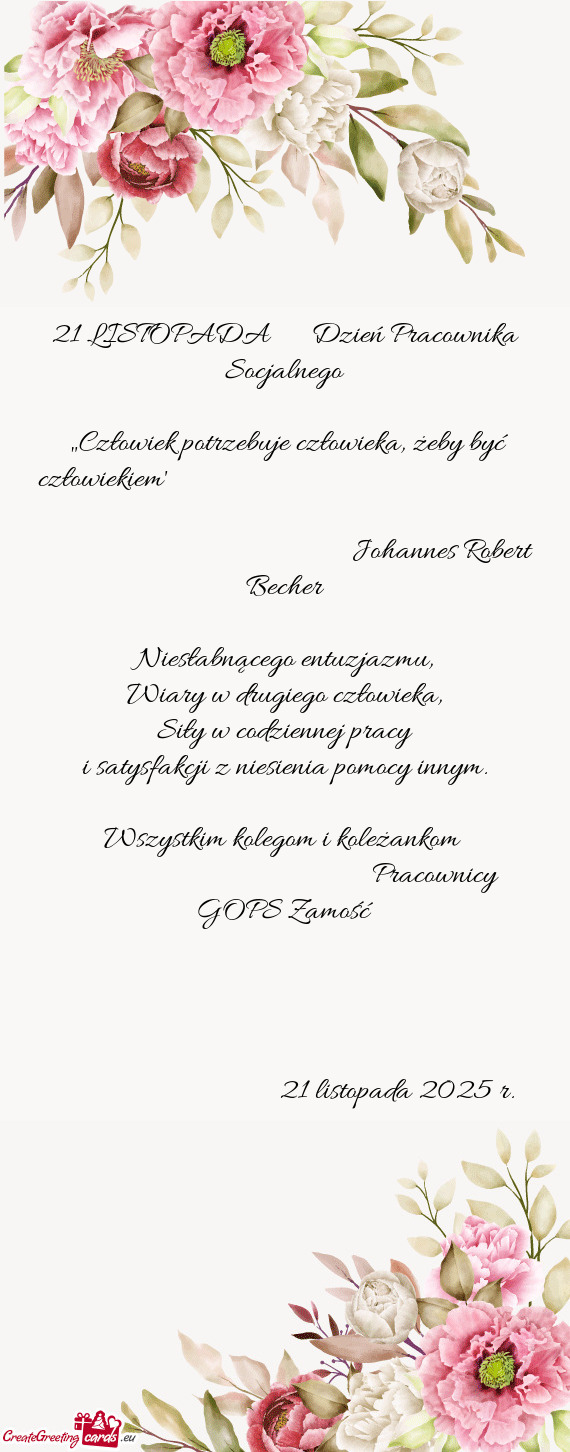 21 LISTOPADA Dzień Pracownika
Socjalnego
„Człowiek potrzebuje człowieka, żeby być
człowiekiem'
Johannes Robert
Becher
Niesłabnącego entuzjazmu,
Wiary w drugiego człowieka,
Siły w codziennej pracy
i satysfakcji z niesienia pomocy innym.
Wszystkim kolegom i koleżankom
Pracownicy
GOPS Zamość
21 listopada 2025 r.
CreateGreeting cards .eu